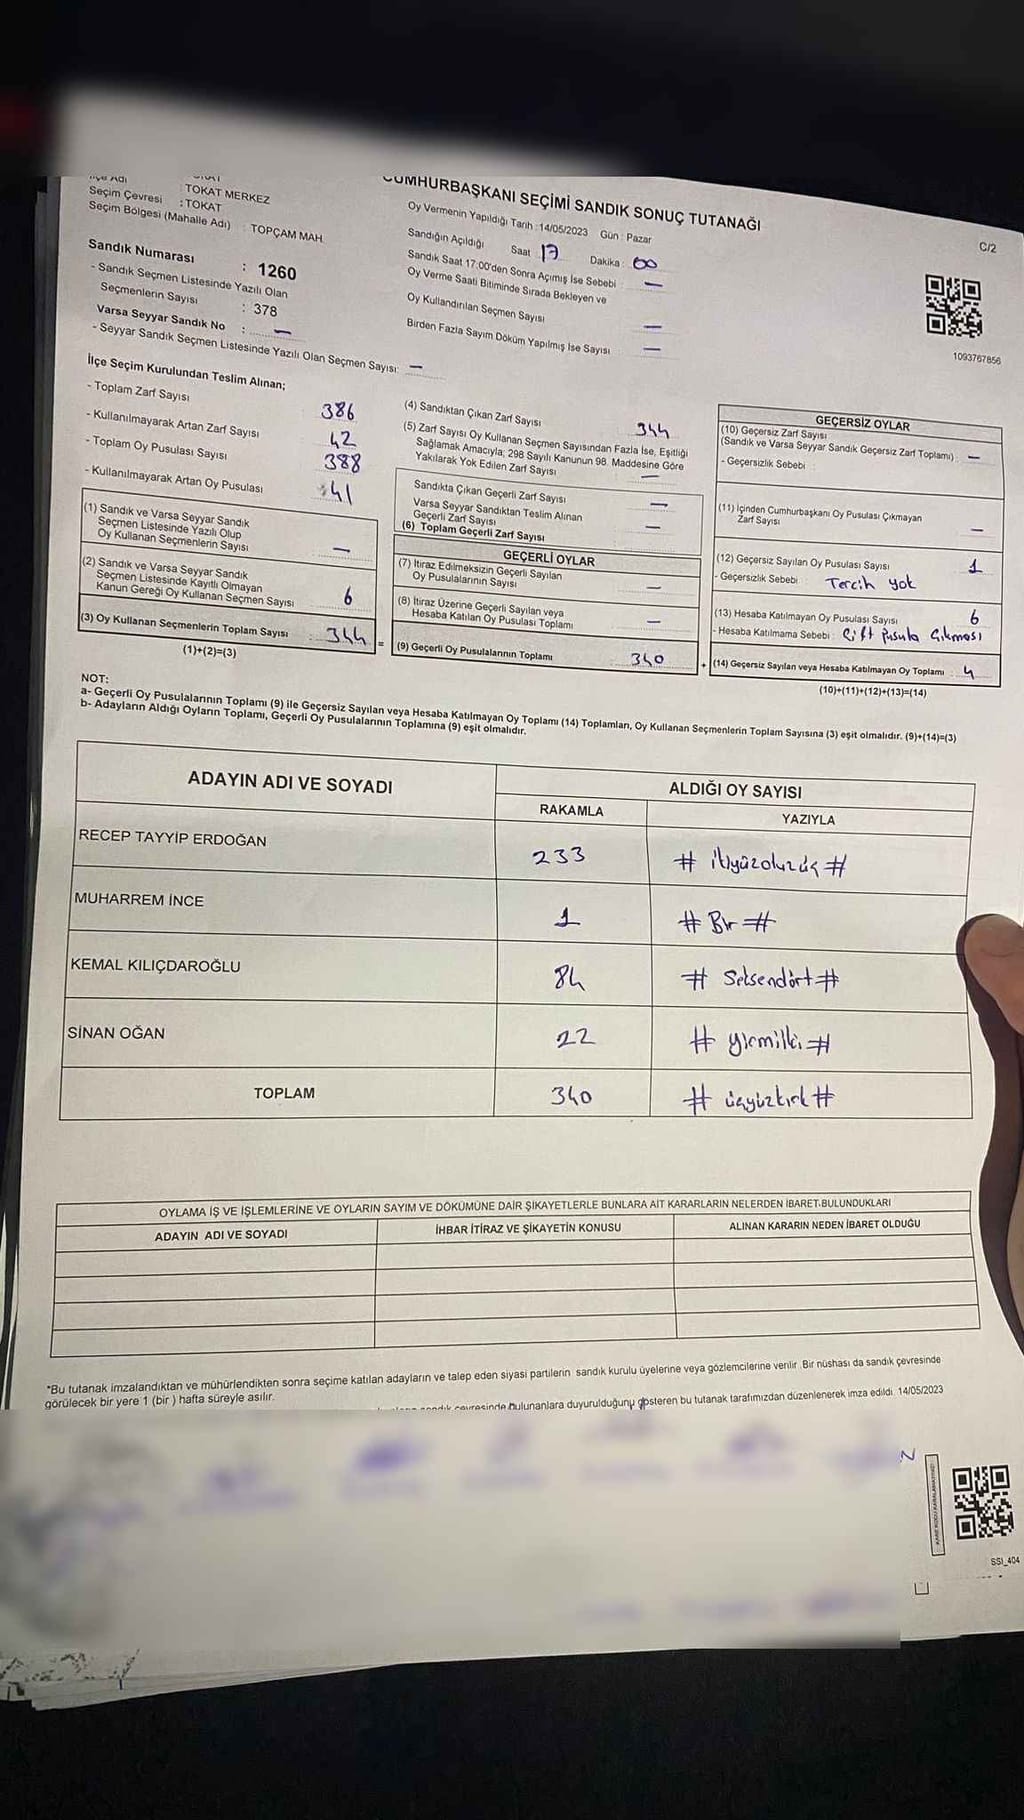 TOKAT MERKEZ
Seçim Çevresi : TOKAT
Seçim Bölgesi (Mahalle Adı) : TOPÇAM MAH.
Sandık Numarası : 1260
- Sandık Seçmen Listesinde Yazılı Olan
Seçmenlerin Sayısı : 378
Varsa Seyyar Sandık No : —
- Seyyar Sandık Seçmen Listesinde Yazılı Olan Seçmen Sayısı: —
CUMHURBAŞKANI SEÇİMİ SANDIK SONUÇ TUTANAĞI
Oy Vermenin Yapıldığı Tarih : 14/05/2023 Gün : Pazar
Sandığın Açıldığı Saat 17 Dakika : 00
Sandık Saat 17:00'den Sonra Açımış İse Sebebi : —
Oy Verme Saati Bitiminde Sırada Bekleyen ve
Oy Kullandırılan Seçmen Sayısı —
Birden Fazla Sayım Döküm Yapılmış İse Sayısı —
C/2
1093767856
İlçe Seçim Kurulundan Teslim Alınan;
- Toplam Zarf Sayısı 386
- Kullanılmayarak Artan Zarf Sayısı 42
- Toplam Oy Pusulası Sayısı 388
- Kullanılmayarak Artan Oy Pusulası 41
(1) Sandık ve Varsa Seyyar Sandık
Seçmen Listesinde Yazılı Olup
Oy Kullanan Seçmenlerin Sayısı —
(2) Sandık ve Varsa Seyyar Sandık
Seçmen Listesinde Kayıtlı Olmayan
Kanun Gereği Oy Kullanan Seçmen Sayısı 6
(3) Oy Kullanan Seçmenlerin Toplam Sayısı : 344 =
(1)+(2)=(3)
(4) Sandıktan Çıkan Zarf Sayısı 344
(5) Zarf Sayısı Oy Kullanan Seçmen Sayısından Fazla İse, Eşitliği
Sağlamak Amacıyla; 298 Sayılı Kanunun 98. Maddesine Göre
Yakılarak Yok Edilen Zarf Sayısı —
Sandıkta Çıkan Geçerli Zarf Sayısı —
Varsa Seyyar Sandıktan Teslim Alınan
Geçerli Zarf Sayısı —
(6) Toplam Geçerli Zarf Sayısı
GEÇERLİ OYLAR
(7) İtiraz Edilmeksizin Geçerli Sayılan
Oy Pusulalarının Sayısı —
(8) İtiraz Üzerine Geçerli Sayılan veya
Hesaba Katılan Oy Pusulası Toplamı —
(9) Geçerli Oy Pusulalarının Toplamı 340 +
GEÇERSİZ OYLAR
(10) Geçersiz Zarf Sayısı
(Sandık ve Varsa Seyyar Sandık Geçersiz Zarf Toplamı) —
- Geçersizlik Sebebi :
(11) İçinden Cumhurbaşkanı Oy Pusulası Çıkmayan
Zarf Sayısı —
(12) Geçersiz Sayılan Oy Pusulası Sayısı 1
- Geçersizlik Sebebi : Tercih yok
(13) Hesaba Katılmayan Oy Pusulası Sayısı 6
- Hesaba Katılmama Sebebi : Çift Pusula Çıkması
(14) Geçersiz Sayılan veya Hesaba Katılmayan Oy Toplamı 4
(10)+(11)+(12)+(13)=(14)
NOT:
a- Geçerli Oy Pusulalarının Toplamı (9) ile Geçersiz Sayılan veya Hesaba Katılmayan Oy Toplamı (14) Toplamları, Oy Kullanan Seçmenlerin Toplam Sayısına (3) eşit olmalıdır. (9)+(14)=(3)
b- Adayların Aldığı Oyların Toplamı, Geçerli Oy Pusulalarının Toplamına (9) eşit olmalıdır.
ADAYIN ADI VE SOYADI ALDIĞI OY SAYISI
RAKAMLA YAZIYLA
RECEP TAYYİP ERDOĞAN 233 # ikiyüzotuzüç #
MUHARREM İNCE 1 # Bir #
KEMAL KILIÇDAROĞLU 84 # Seksendört #
SİNAN OĞAN 22 # yirmiiki #
TOPLAM 340 # üçyüzkırk #
OYLAMA İŞ VE İŞLEMLERİNE VE OYLARIN SAYIM VE DÖKÜMÜNE DAİR ŞİKAYETLERLE BUNLARA AİT KARARLARIN NELERDEN İBARET BULUNDUKLARI
ADAYIN ADI VE SOYADI İHBAR İTİRAZ VE ŞİKAYETİN KONUSU ALINAN KARARIN NEDEN İBARET OLDUĞU
*Bu tutanak imzalandıktan ve mühürlendikten sonra seçime katılan adayların ve talep eden siyasi partilerin sandık kurulu üyelerine veya gözlemcilerine verilir. Bir nüshası da sandık çevresinde
görülecek bir yere 1 (bir ) hafta süreyle asılır.
sandık çevresinde bulunanlara duyurulduğunu gösteren bu tutanak tarafımızdan düzenlenerek imza edildi. 14/05/2023
SSI_404